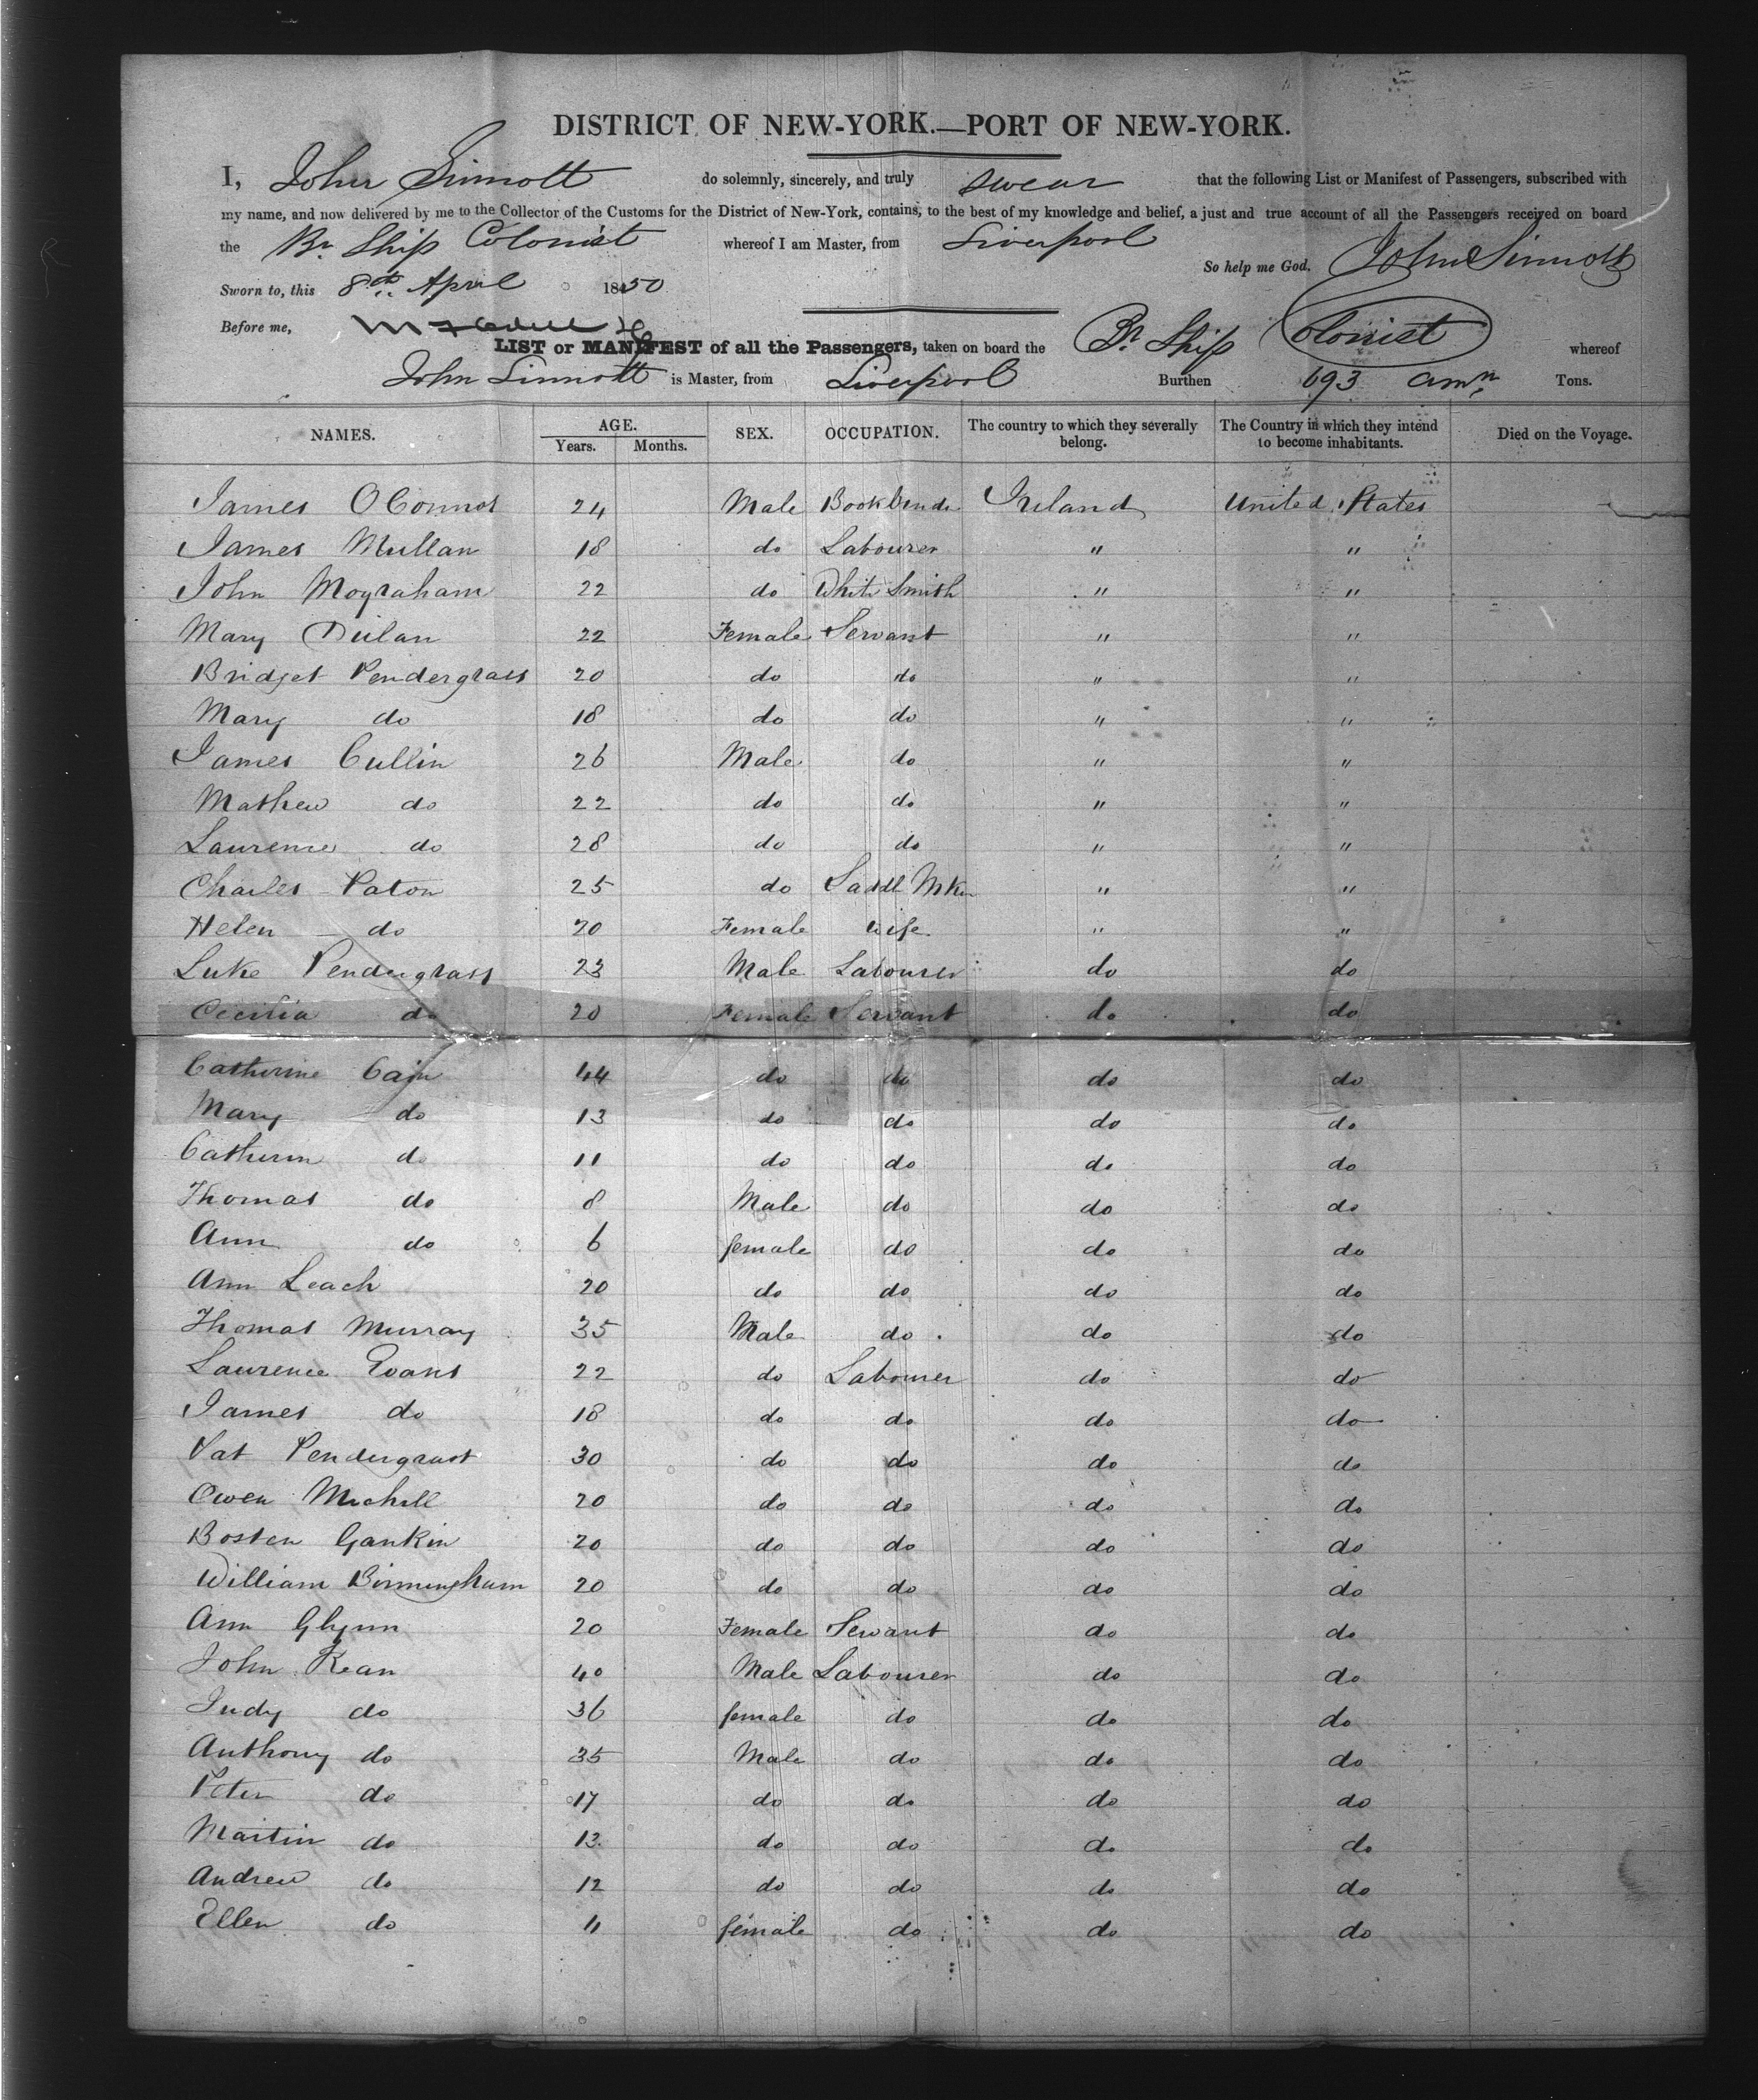 DISTRICT OF NEW-YORK.—PORT OF NEW-YORK.
I, John Sinnott do solemnly, sincerely, and truly swear that the following List or Manifest of Passengers, subscribed with
my name, and now delivered by me to the Collector of the Customs for the District of New-York, contains, to the best of my knowledge and belief, a just and true account of all the Passengers received on board
the Br. Ship Colonist whereof I am Master, from Liverpool
So help me God. John Sinnott
Sworn to, this 8th April 1850
Before me,
LIST or MANIFEST of all the Passengers, taken on board the Br Ship Colonist whereof
John Sinnott is Master, from Liverpool Burthen 693 Tons.
NAMES. AGE. Years. Months. SEX. OCCUPATION. The country to which they severally belong. The Country in which they intend to become inhabitants. Died on the Voyage.
James OConnor 24 Male Bookbinder Ireland United States
James Mullan 18 do Labourer " "
John Mograham 22 do White Smith " "
Mary 22 Female Servant " "
Bridget Pendergrass 20 do do " "
Mary do 18 do do " "
James Cullin 26 Male do " "
Mathew do 22 do do " "
Laurence do 28 do do " "
Charles Paton 25 do Saddl Mkr " "
Helen do 20 Female Wife " "
Luke Pendergrass 23 Male Labourer do do
Cecilia do 20 Female Servant do do
Catherine Cain 44 do do do do
Mary do 13 do do do do
Catherin do 11 do do do do
Thomas do 8 Male do do do
Ann do 6 female do do do
Ann Leach 20 do do do do
Thomas Murray 35 Male do do do
Laurence Evans 22 do Labourer do do
James do 18 do do do do
Pat Pendergrast 30 do do do do
Owen 20 do do do do
Bosten Gankin 20 do do do do
William Birmingham 20 do do do do
Ann Glynn 20 Female Servant do do
John Kean 40 Male Labourer do do
Judy do 36 female do do do
Anthony do 35 Male do do do
Peter do 17 do do do do
Martin do 13 do do do do
Andrew do 12 do do do do
Ellen do 11 female do do do